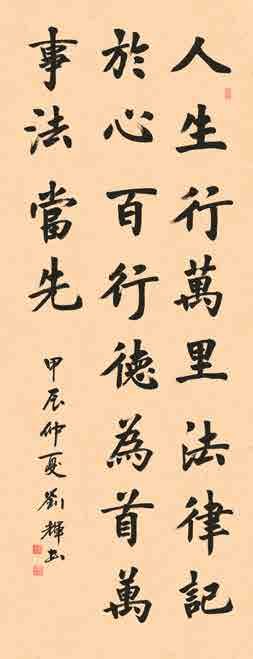 人生行萬里法律記
於心百行德為首萬
事法當先
甲辰仲夏劉輝書